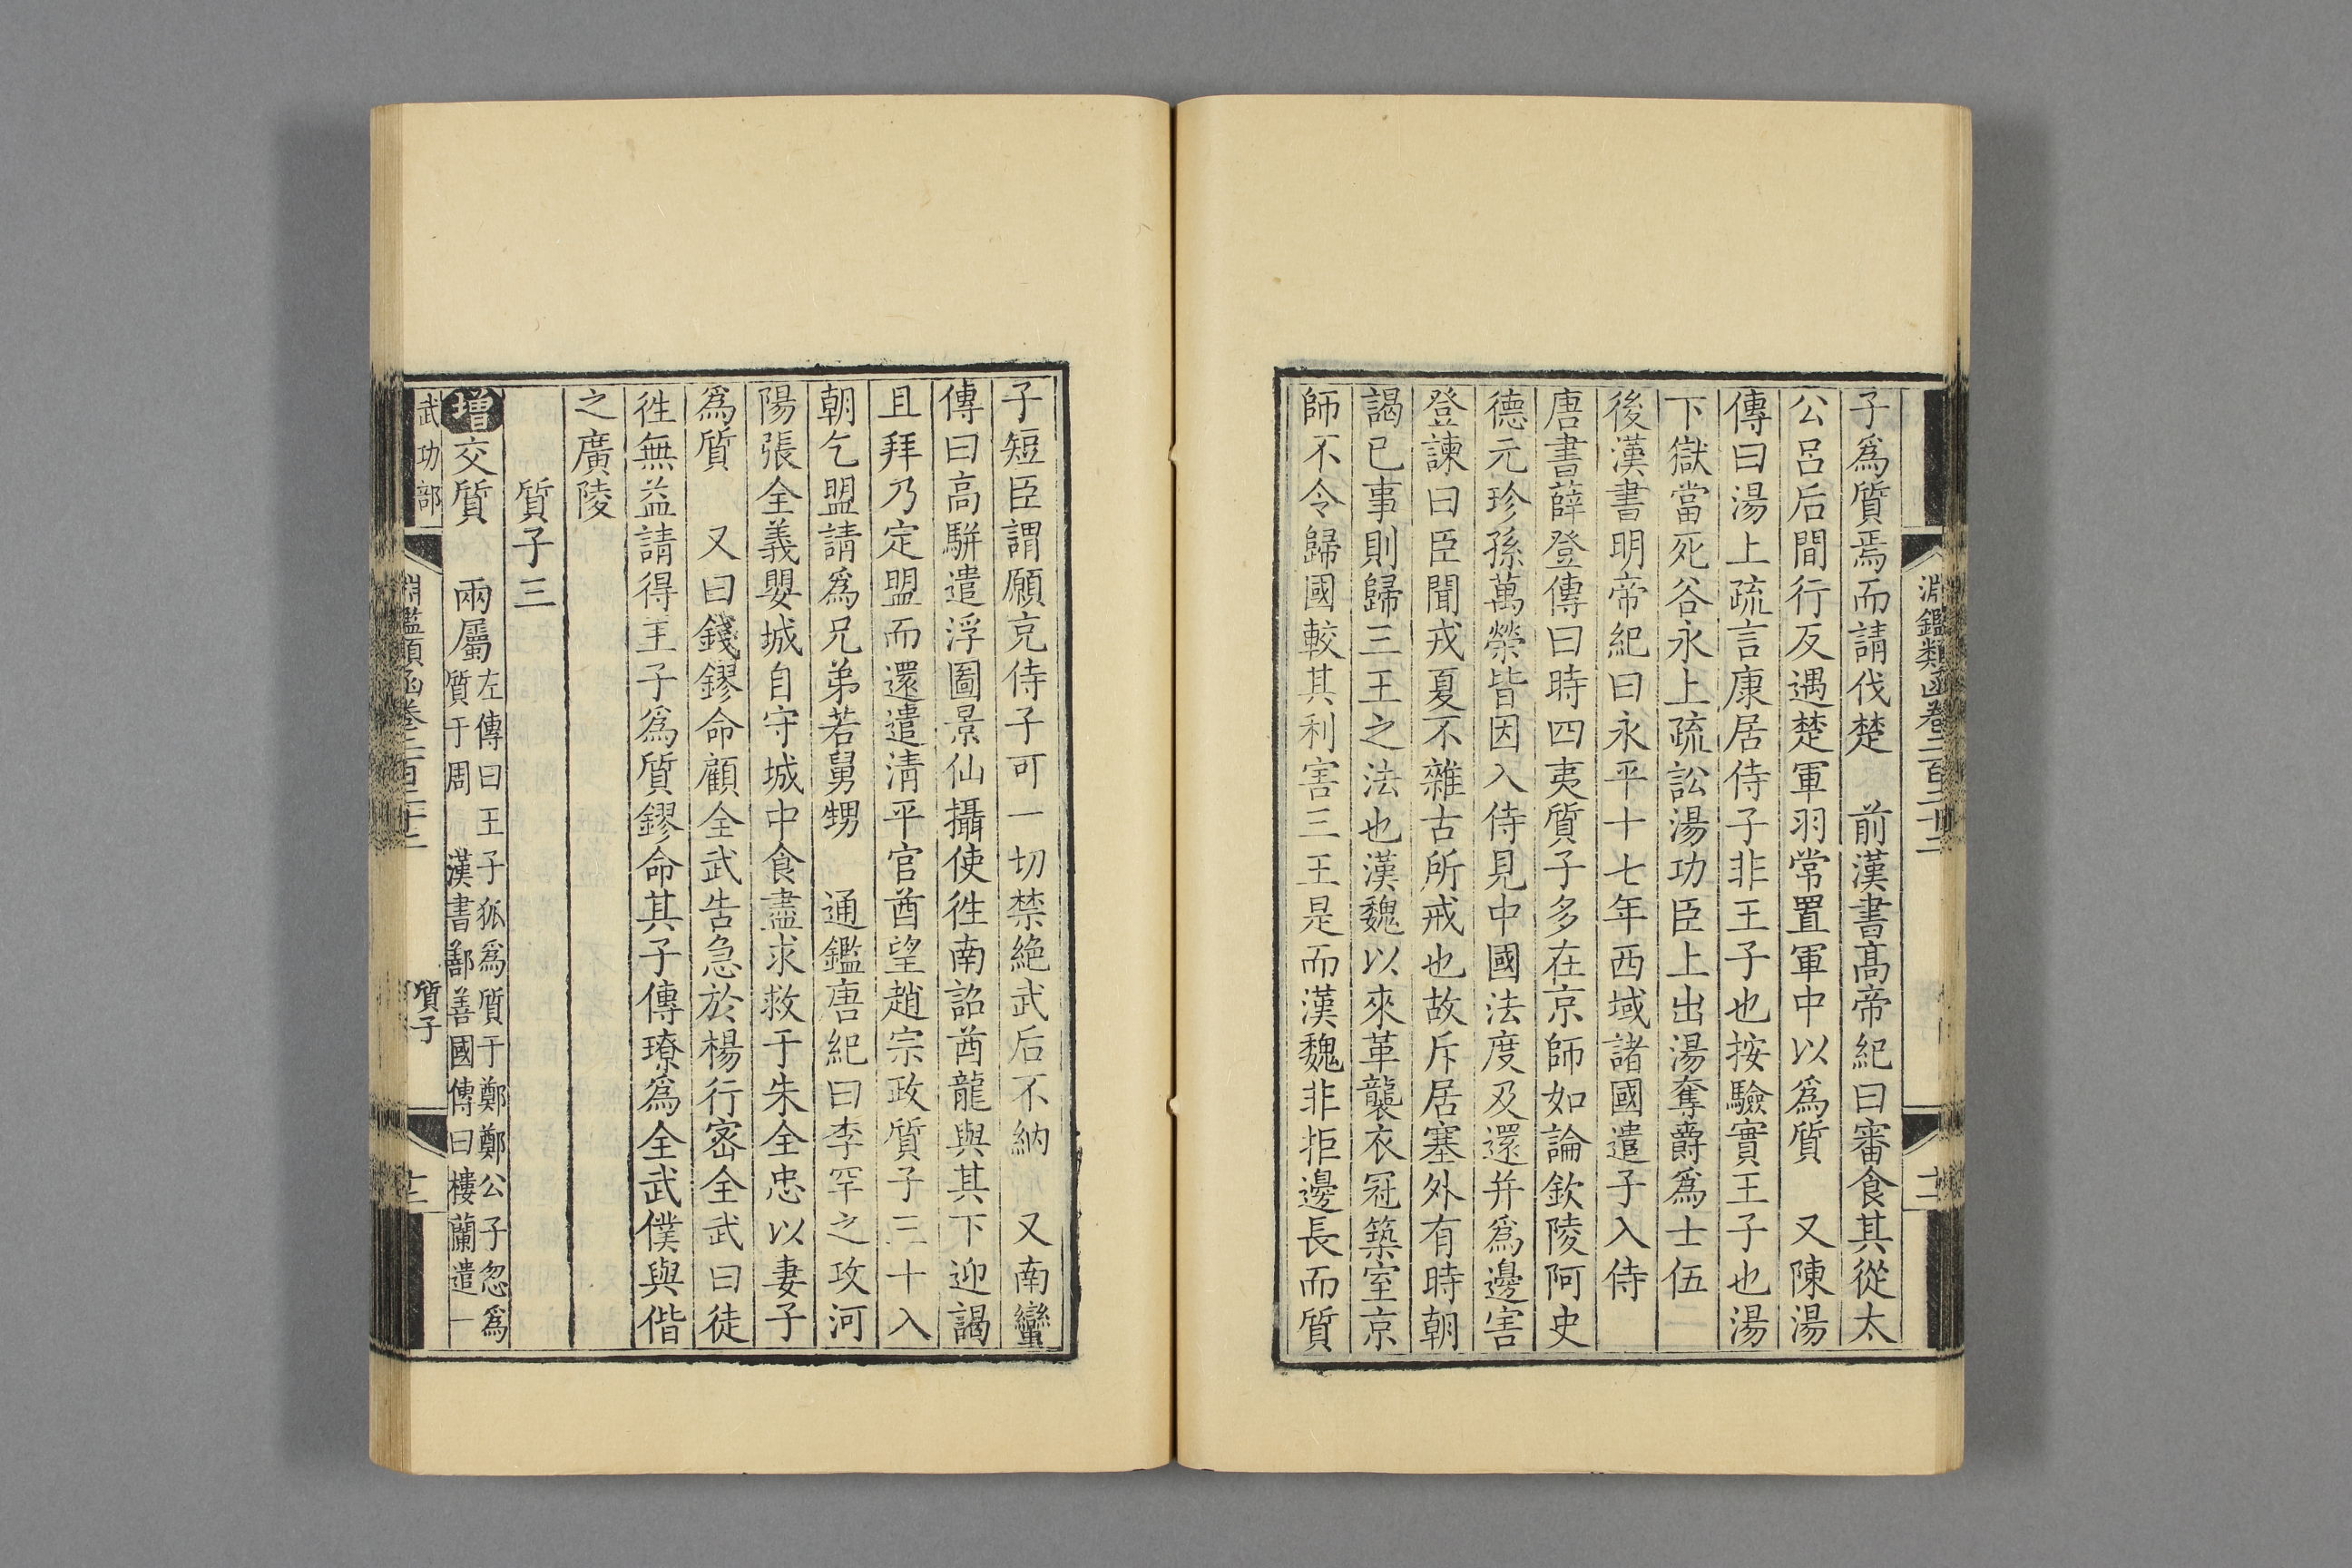 淵鑑類函卷二百二十二
子爲質焉而請伐楚　前漢書髙帝紀曰審食其從太
公呂后間行反遇楚軍羽常置軍中以爲質　又陳湯
傳曰湯上疏言康居侍子非王子也按驗實王子也湯
下獄當死谷永上疏訟湯功臣上出湯奪爵爲士伍
後漢書明帝紀曰永平十七年西域諸國遣子入侍
唐書薛登傳曰時四夷質子多在京師如論欽陵阿史
德元珍孫萬榮皆因入侍見中國法度及還并爲邊害
登諫曰臣聞戎夏不雜古所戒也故斥居塞外有時朝
謁已事則歸三王之法也漢魏以來革襲衣冠築室京
師不令歸國較其利害三王是而漢魏非拒邊長而質
子短臣謂願克侍子可一切禁絶武后不納　又南蠻
傳曰高駢遣浮圖景仙攝使徃南詔酋龍與其下迎謁
且拜乃定盟而還遣清平官酋望趙宗政質子三十入
朝乞盟請爲兄弟若舅甥　通鑑唐紀曰李罕之攻河
陽張全義嬰城自守城中食盡求救于朱全忠以妻子
爲質　又曰錢鏐命顧全武告急於楊行密全武曰徒
徃無益請得王子爲質鏐命其子傳璙爲全武僕與偕
之廣陵
質子三
增交質　兩屬左傳曰王子狐爲質于鄭鄭公子忽爲
質于周　漢書鄯善國傳曰樓蘭遣一
武功部
質子